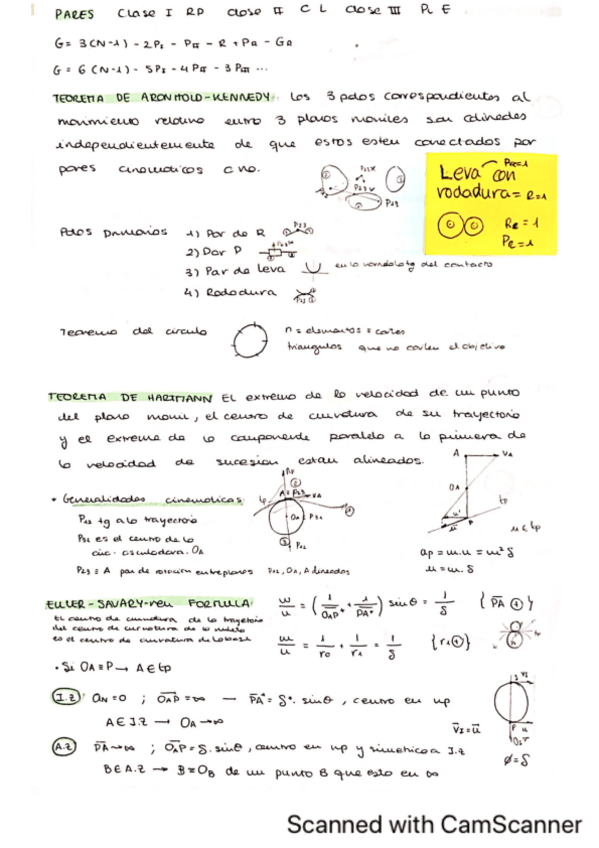 PARES Clase I RP Clase II C L Clase III PL E
G = 3(N-1) - 2PI - PII - R + PR - GR
G = 6(N-1) - 5PI - 4PII - 3PIII ...
TEOREMA DE ARONHOLD-KENNEDY: Los 3 polos correspondientes al
movimiento relativo entre 3 planos moviles son alineados
independientemente de que estos esten conectados por
pares cinematicos o no.
Leva con
rodadura = R=1
PR=1
RR = 1
PR = 1
Polos primarios 1) Par de R
2) Par P
3) Par de leva en la normal a la tg del contacto
4) Rodadura
Teorema del circulo n = elementos = cortes
triangulos que no corten el objetivo
TEOREMA DE HARTMANN El extremo de la velocidad de un punto
del plano movil, el centro de curvatura de su trayectoria
y el extremo de la componente paralela a la primera de
la velocidad de sucesion estan alineados.
• Generalidades cinematicas:
P21 tg a la trayectoria
P31 es el centro de la
circ. osculadora. OA
P23 ≡ A par de rotacion entre planos P21, OA, A alineados
u ∈ tp
ap = w.u = w² δ
u = w. δ
EULER-SAVARY-1era FORMULA:
w/u = (1/OAP + 1/PA) sin θ = 1/δ { PA ⊕ }
El centro de curvatura de la trayectoria
del centro de curvatura de la ruleta
es el centro de curvatura de la base
w/u = 1/r0 + 1/r1 = 1/δ { r1 ⊕ }
• Si OA ≡ P → A ∈ tp
I.Z: aN = 0 ; OAP = ∞ — PA* = δ*. sin θ , centro en np
A ∈ I.Z → OA → ∞
VI = u
A.Z PA → ∞ ; OAP = δ. sin θ, centro en np y simetrico a I.Z
B ∈ A.Z → B ≡ OB de un punto B que esta en ∞
Ø = δ
Scanned with CamScanner